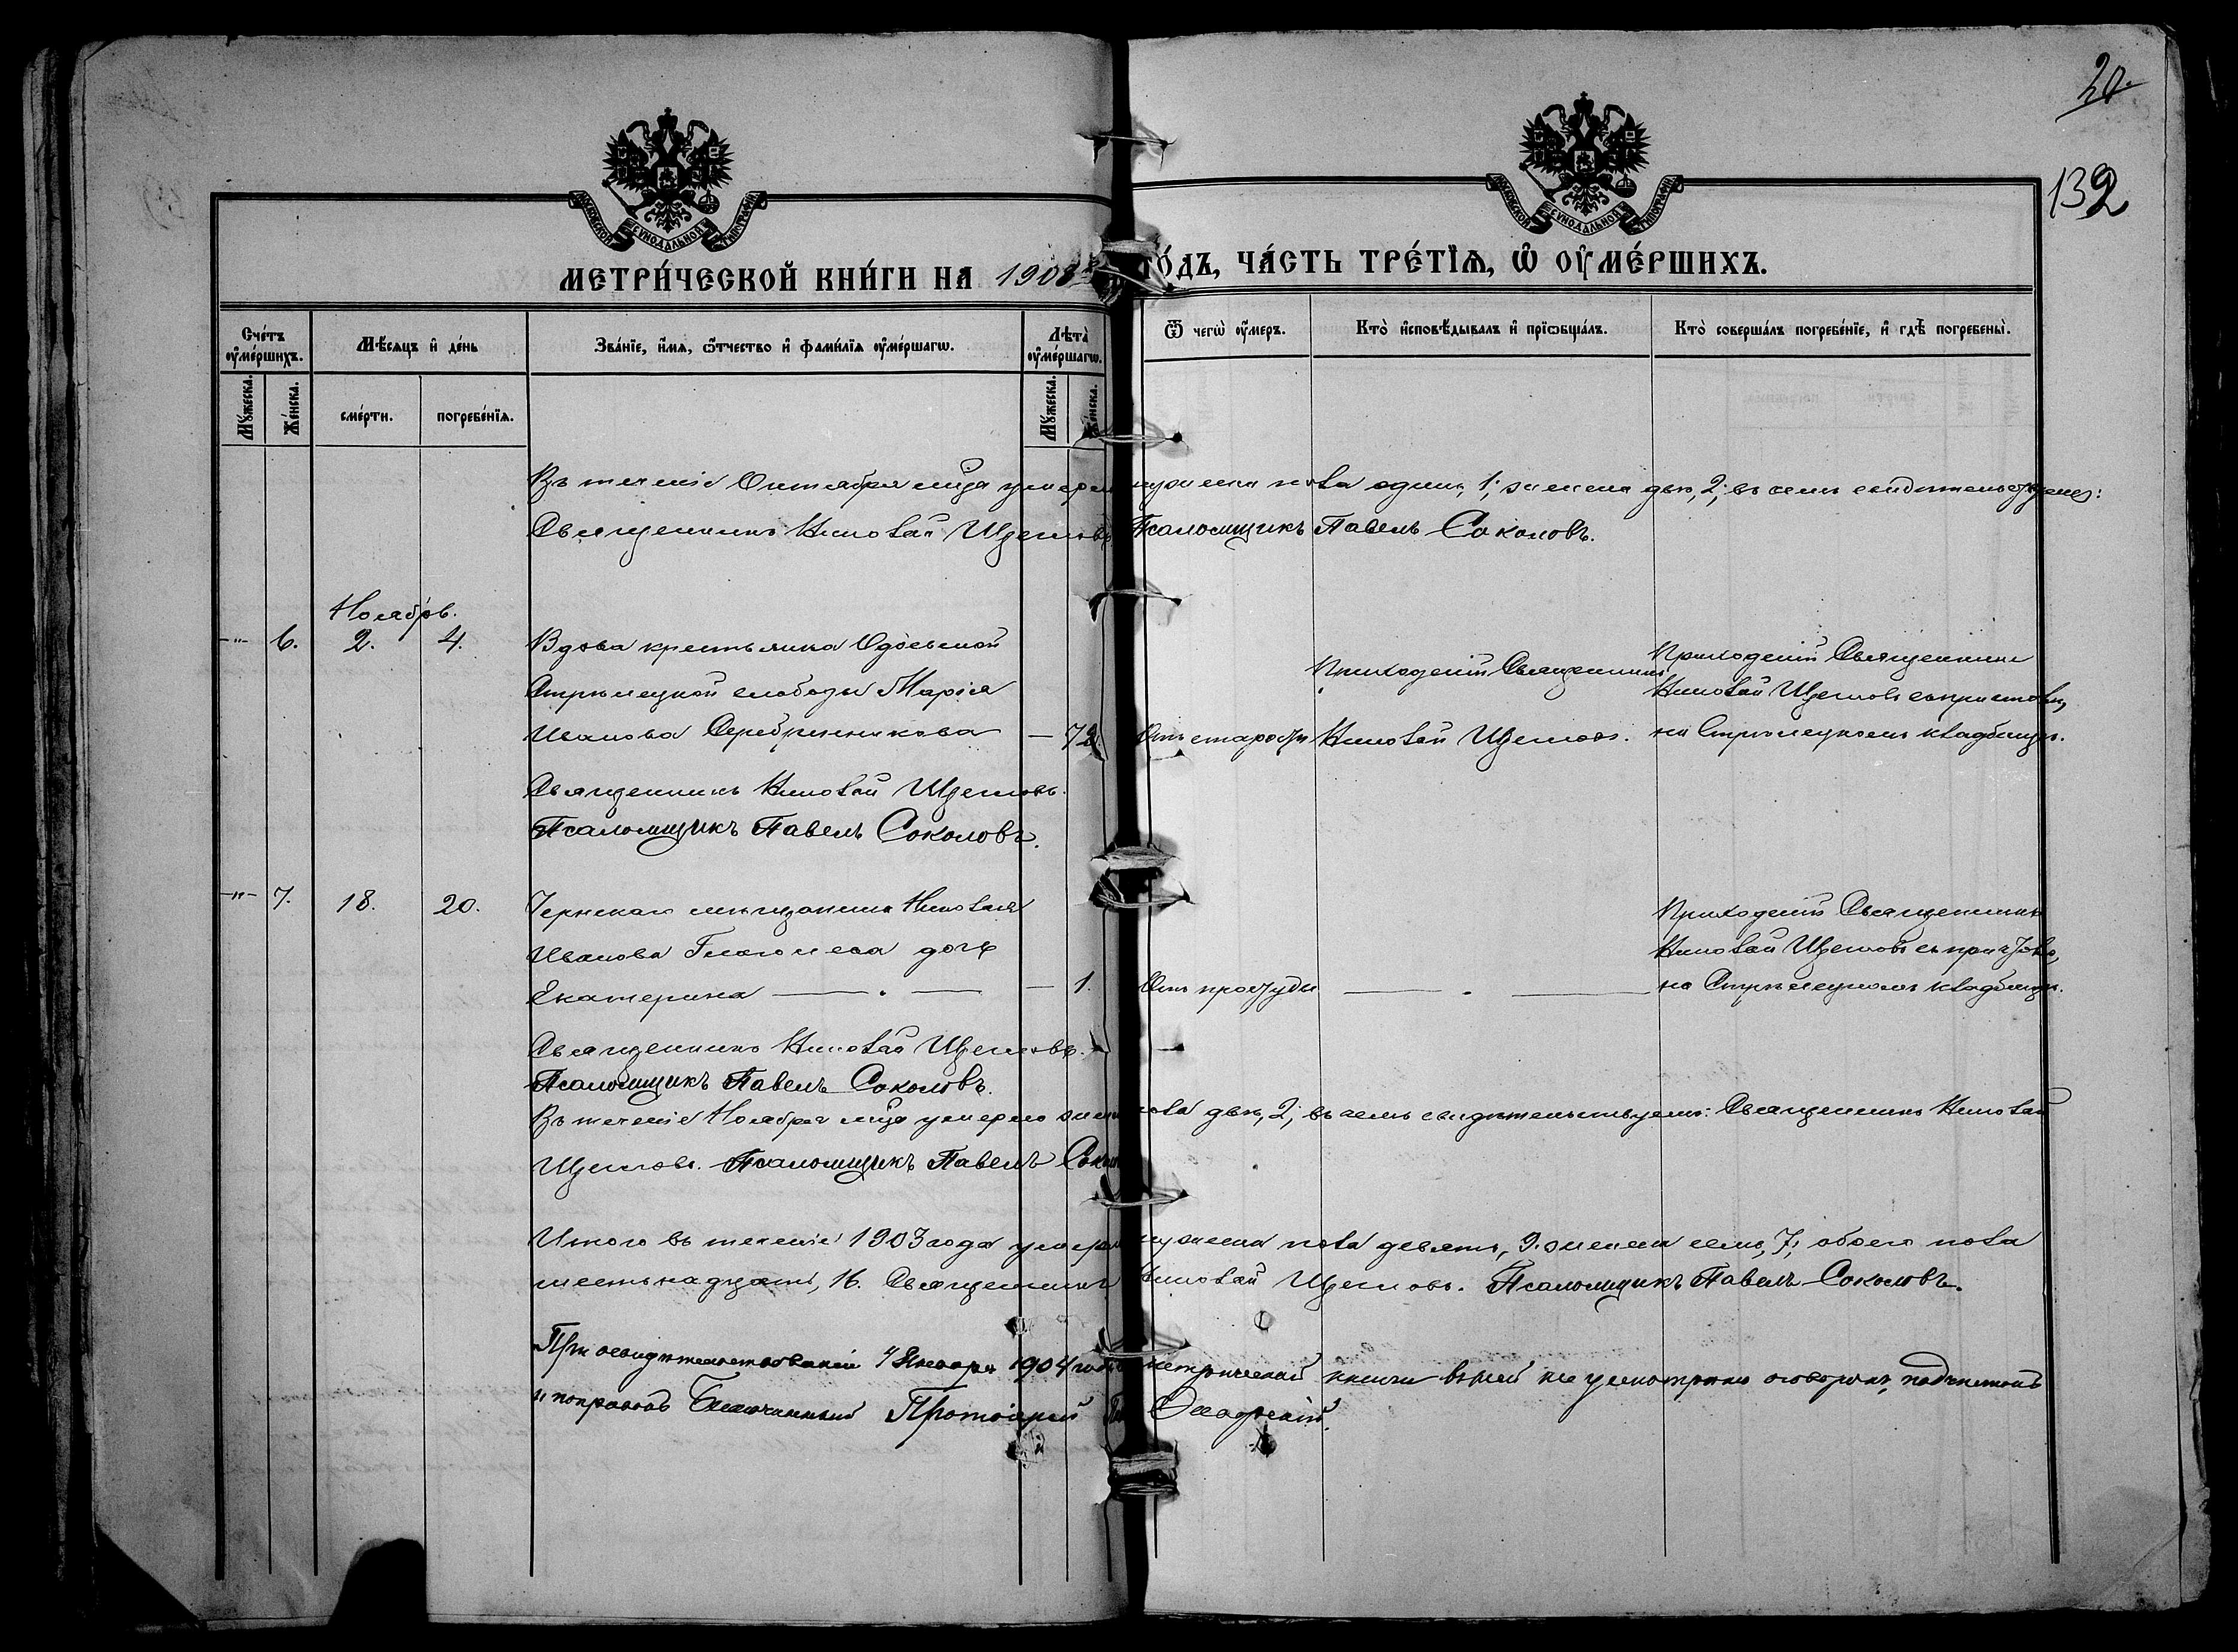 20.
132
МОСКОВСКОЙ СУНОДАЛЬНОЙ ТИПОГРАФІИ
МОСКОВСКОЙ СУНОДАЛЬНОЙ ТИПОГРАФІИ
МЕТРИ́ЧЕСКОЙ КНИ́ГИ НА 1903 ГО́ДЪ, ЧА́СТЬ ТРЕ́ТЇѦ, Ѿ ОУМЕ́РШИХЪ.
Сче́тъ оумéршихъ.
Мѣ́сяцъ и де́нь
Зва́нїе, и́мя, ѻ́тчество и фами́лїя оумéршагѡ.
Лѣта̀ оумéршагѡ.
Ѿ чегѡ̀ оу́меръ.
Кто̀ исповѣ́дывалъ и прїѡбща́лъ.
Кто̀ соверша́лъ погребе́нїе, и гдѣ̀ погребены̀.
Мꙋ́жеска.
Же́нска.
сме́рти.
погребе́нїя.
Мꙋ́жеска.
Же́нска.
Въ теченіе Октября мѣца умерло мужеска пола одинъ, 1; женска двѣ, 2; въ семъ свидѣтельствуемъ:
Священникъ Николай Щегловъ Псаломщикъ Павелъ Соколовъ.
Ноябрь.
-"- 6. 2. 4. Вдова крестьянина Одоевской
Стрѣлецкой слободы Марія
Иванова Серебренникова — 72
Отъ старости
Приходскій Священникъ
Николай Щегловъ.
Приходскій Священникъ
Николай Щегловъ съ причтомъ,
на Стрѣлецкомъ кладбищѣ.
Священникъ Николай Щегловъ.
Псаломщикъ Павелъ Соколовъ.
-"- 7. 18. 20. Чернскаго мѣщанина Николая
Иванова дочь
Екатерина — 1.
Отъ простуды
Приходскій Священникъ
Николай Щегловъ съ причтомъ,
на Стрѣлецкомъ кладбищѣ.
Священникъ Николай Щегловъ.
Псаломщикъ Павелъ Соколовъ.
Въ теченіе Ноября мѣца умерло женска пола двѣ, 2; въ семъ свидѣтельствуемъ: Священникъ Николай
Щегловъ. Псаломщикъ Павелъ Соколовъ
Итого въ теченіе 1903 года умерло мужеска пола девять, 9. женска семь, 7; обоего пола
шестьнадцать, 16. Священникъ Николай Щегловъ. Псаломщикъ Павелъ Соколовъ.
При освидѣтельствованіи Января 1904 года метрической книги сей не усмотрѣно оговорокъ, подчистокъ
и поправокъ Благочинный Протоіерей